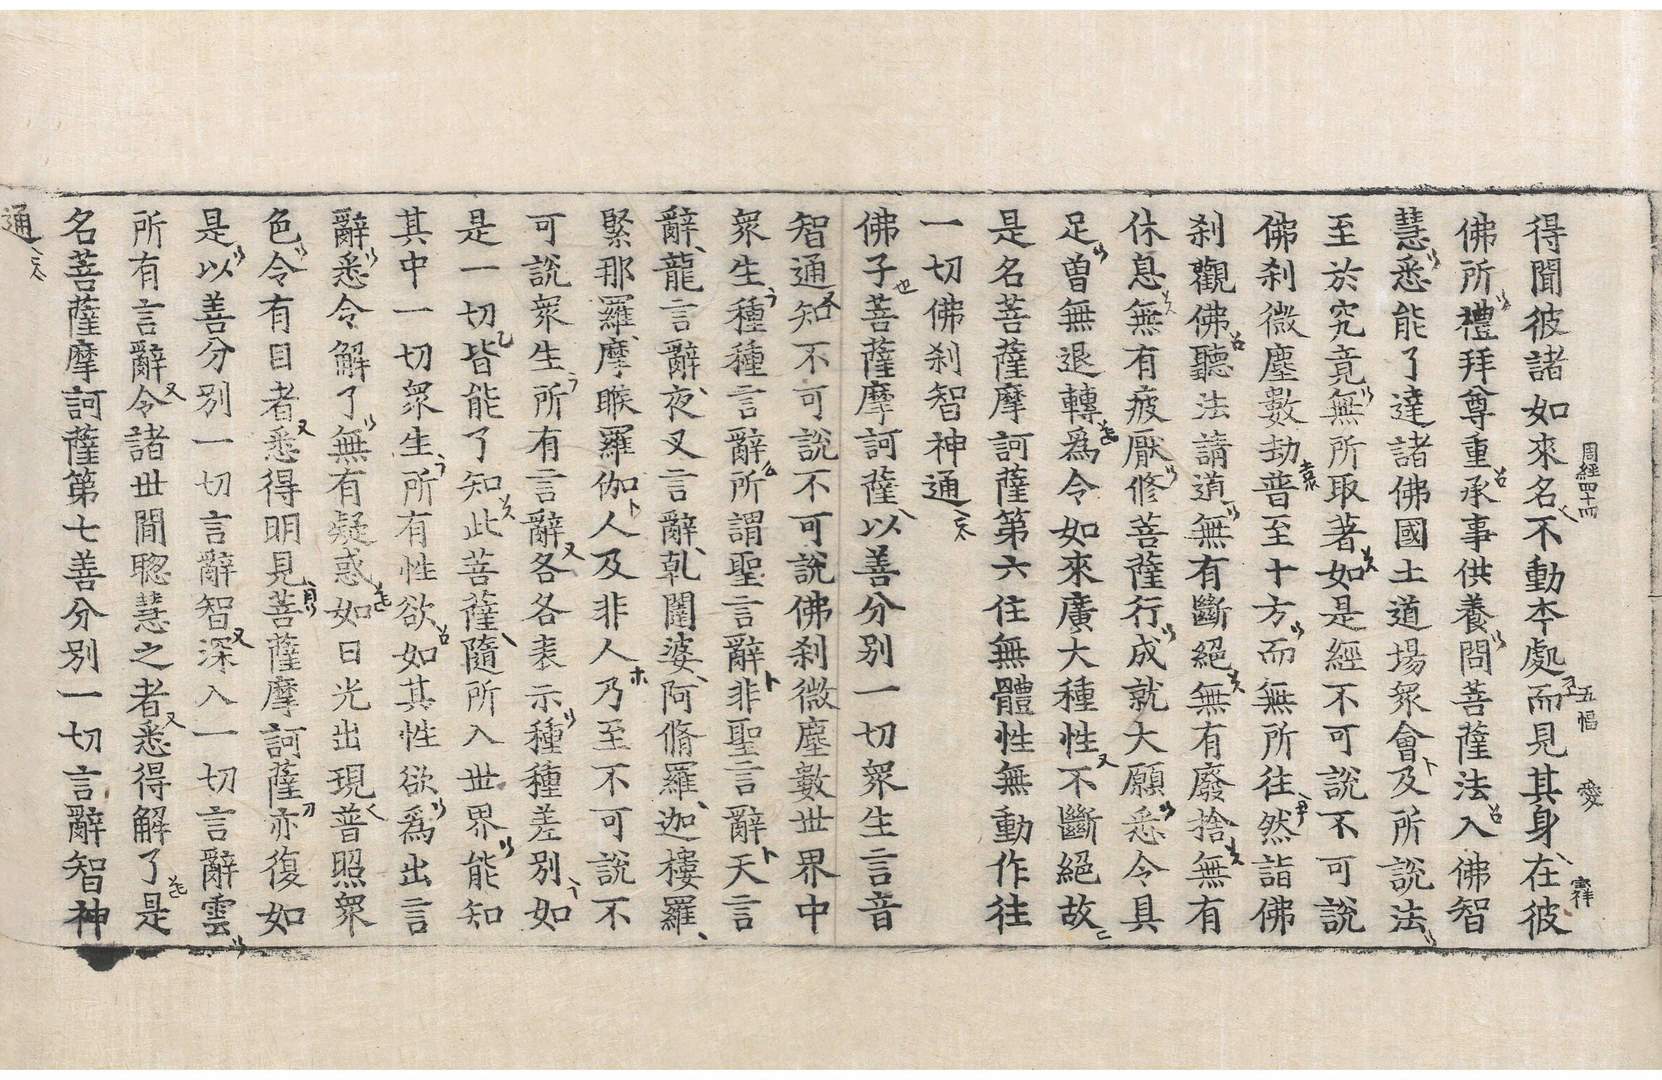 得聞彼諸如來名不動本處而見其身在彼
佛所禮拜尊重承事供養問菩薩法入佛智
慧悉能了達諸佛國土道場衆會及所說法
至於究竟無所取著如是經不可說不可說
佛刹微塵數劫普至十方而無所往然詣佛
刹觀佛聽法請道無有斷絕無有廢捨無有
休息無有疲厭修菩薩行成就大願悉令具
足曾無退轉爲令如來廣大種性不斷絕故
是名菩薩摩訶薩第六住無體性無動作往
一切佛刹智神通
佛子菩薩摩訶薩以善分別一切衆生言音
智通知不可說不可說佛刹微塵數世界中
衆生種種言辭所謂聖言辭非聖言辭天言
辭龍言辭夜叉言辭乹闥婆阿脩羅迦樓羅
緊那羅摩睺羅伽人及非人乃至不可說不
可說衆生所有言辭各各表示種種差別如
是一切皆能了知此菩薩隨所入世界能知
其中一切衆生所有性欲如其性欲爲出言
辭悉令解了無有疑惑如日光出現普照衆
色令有目者悉得明見菩薩摩訶薩亦復如
是以善分別一切言辭智深入一切言辭雲
所有言辭令諸世間聰慧之者悉得解了是
名菩薩摩訶薩第七善分別一切言辭智神
通
周經四十四
五幅